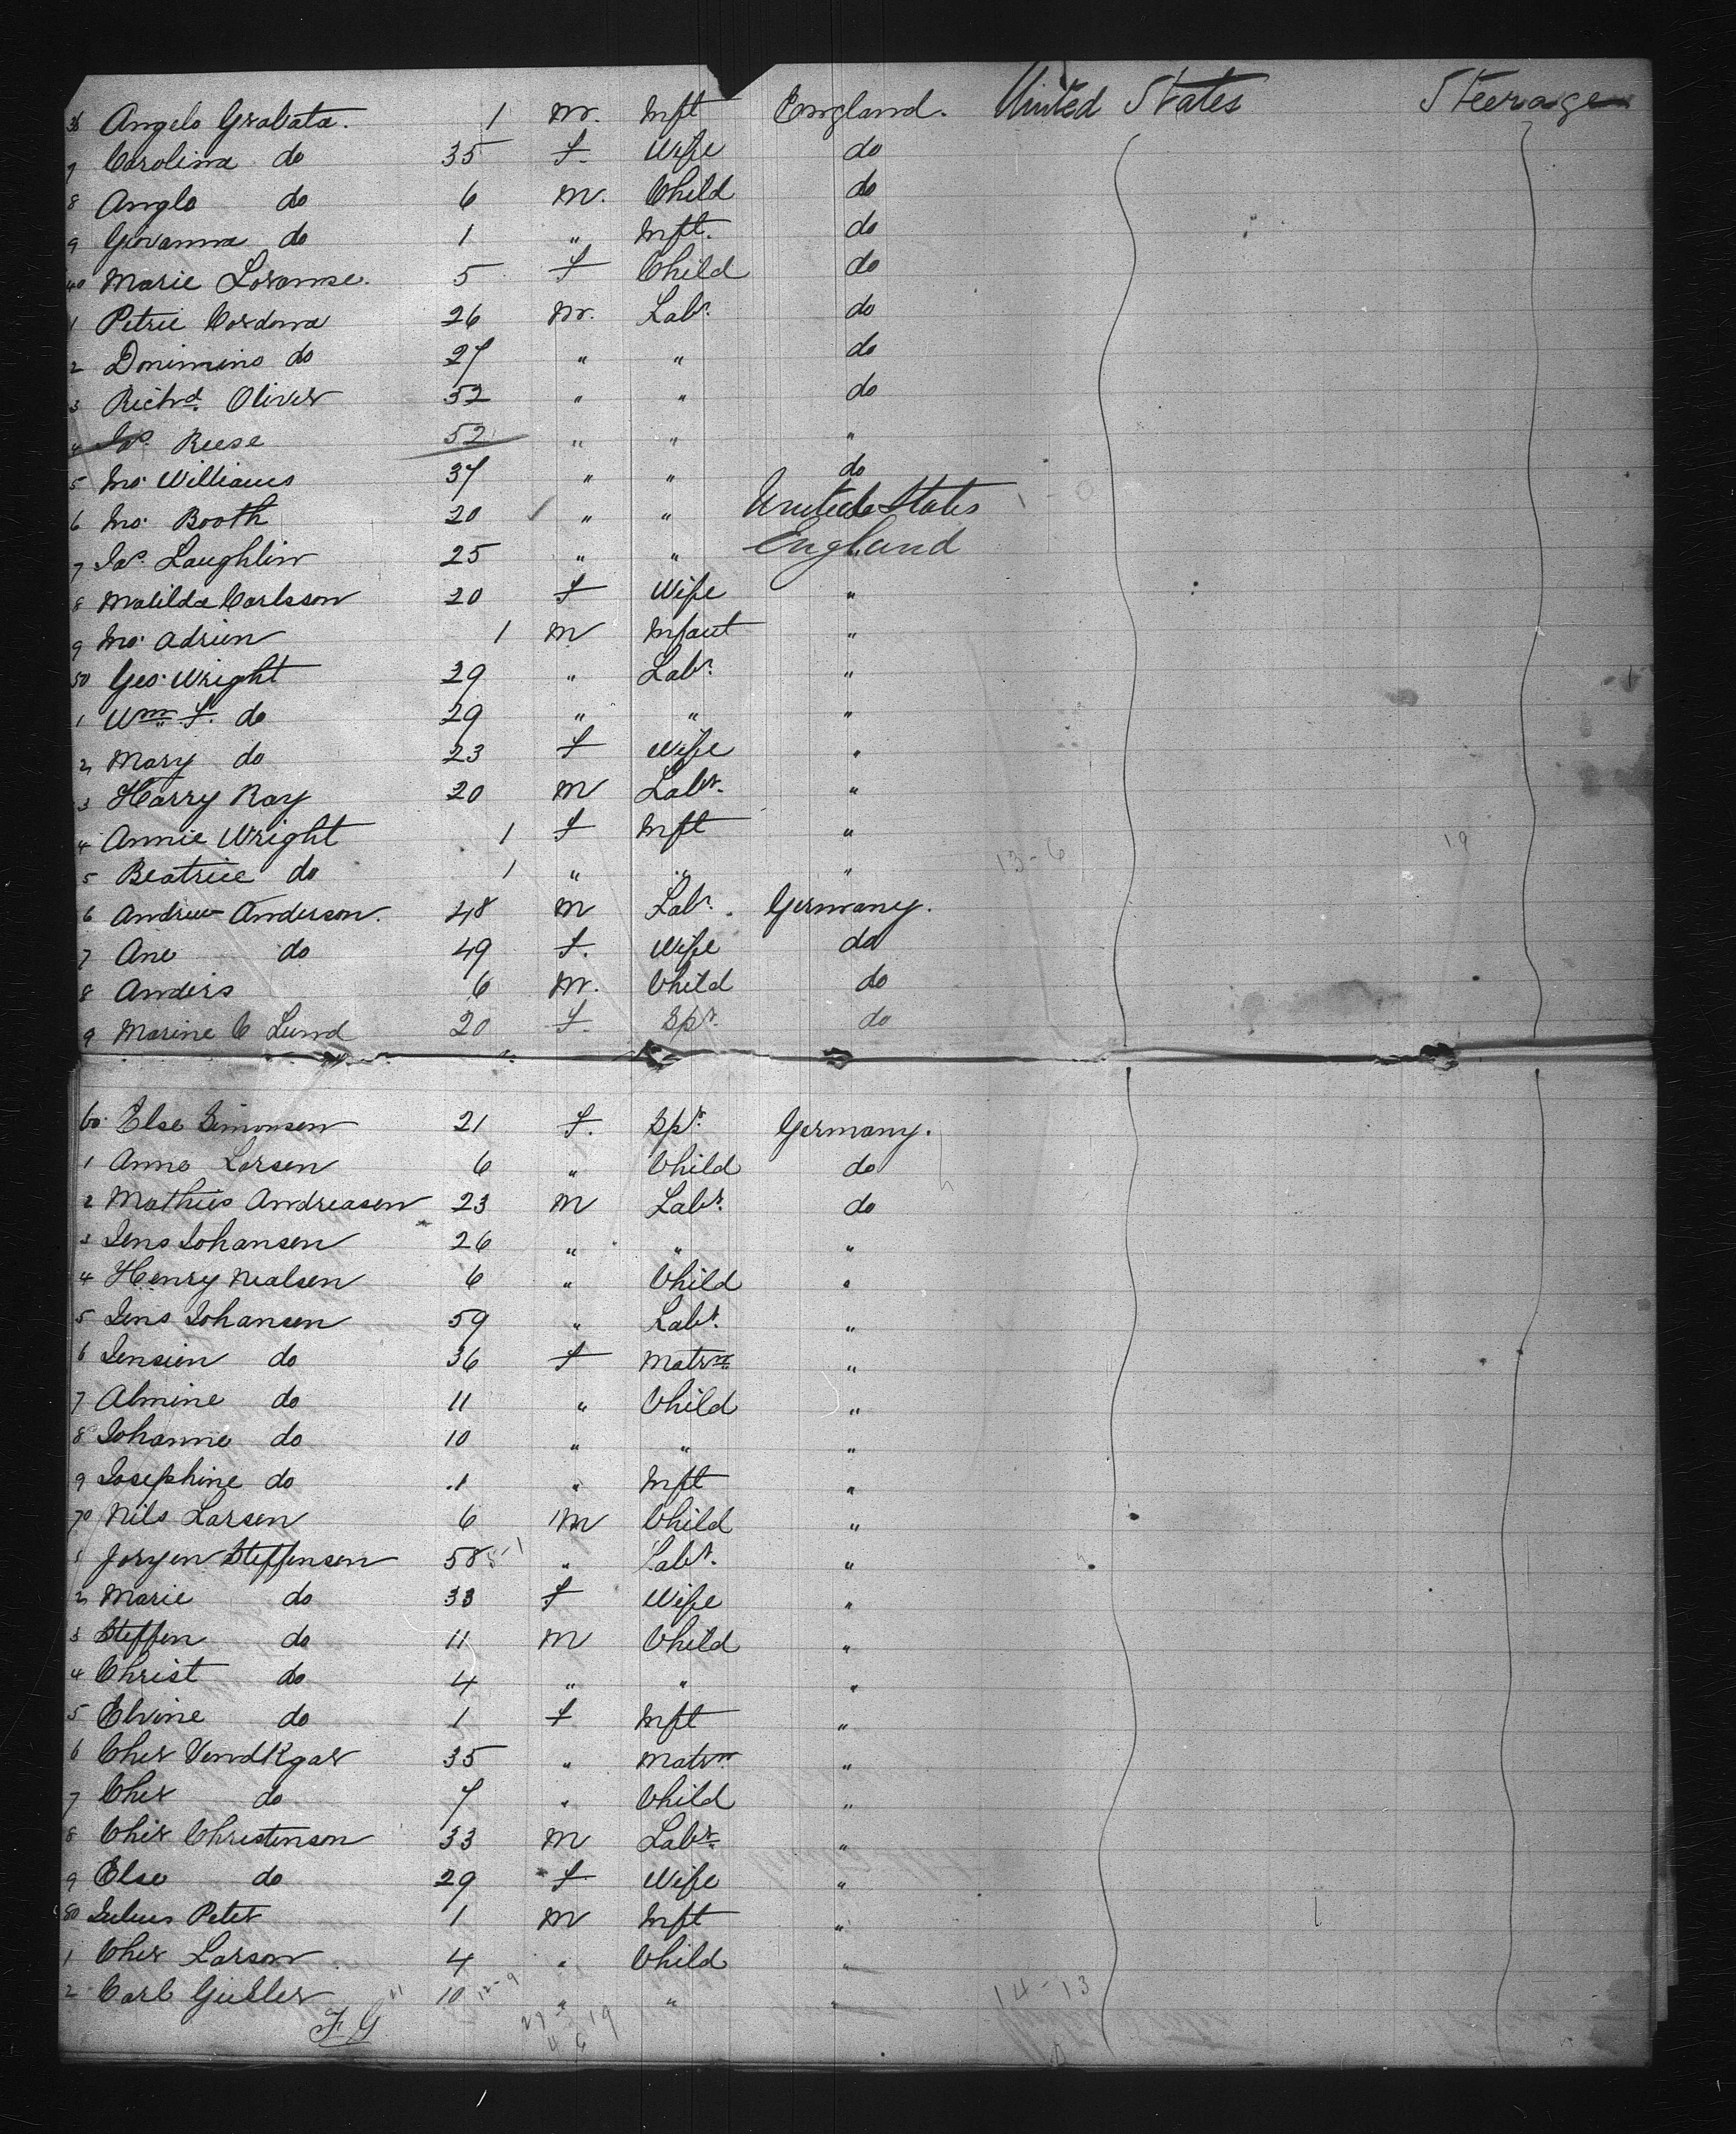 36 Angelo Grabata. 1 M. Inft England. United States Steerage
7 Carolina do 35 F. Wife do
8 Anglo do 6 M. Child do
9 Giovanna do 1 " Inft. do
40 Marie Loranse. 5 F Child do
1 Petrie Cordona 26 M. Labr. do
2 Donimino do 27 " " do
3 Richd. Oliver 32 " " do
4 Jas. Reese 52 " " "
5 Jno. Williams 37 " " do
6 Jno. Booth 20 " " United States
7 Jas. Laughlin 25 " " England
8 Matilda Carlsson 20 F Wife "
9 Jno. Adrien 1 M Infant "
50 Geo. Wright 29 " Labr. "
1 Wm F. do 29 " " "
2 Mary do 23 F Wife "
3 Harry Ray 20 M Labr. "
4 Annie Wright 1 F Inft "
5 Beatrice do 1 " " " 13-6 19
6 Andrew Anderson. 48 M Labr. Germany.
7 Ane do 49 F. Wife do
8 Anders 6 M. Child do
9 Marine C Lund 20 F. Spr. do
60 Else Simonsen 21 F. Spr. Germany.
1 Anne Larsen 6 " Child do
2 Mathies Andreasen 23 M Labr. do
3 Jens Johansen 26 " " "
4 Henry Nealsen 6 " Child "
5 Jens Johansen 59 " Labr. "
6 Jensien do 36 F Matrn "
7 Almine do 11 " Child "
8 Johanne do 10 " " "
9 Josephine do 1 " Inft "
70 Nils Larsen 6 M Child "
1 Jorgen Steffensen 58 " Labr. "
2 Marie do 33 F Wife "
3 Steffen do 11 M Child "
4 Christ do 4 " " "
5 Elvine do 1 F Inft "
6 Cher VendKgar 35 " Matrn "
7 Cher do 7 " Child "
8 Chir Christenson 33 M Labr "
9 Else do 29 F Wife "
80 Julius Peter 1 M Inft "
1 Cher Larson 4 " Child "
2 Carl Guiller 10 12-9 " " " 14-13
F G 27 19
11 6